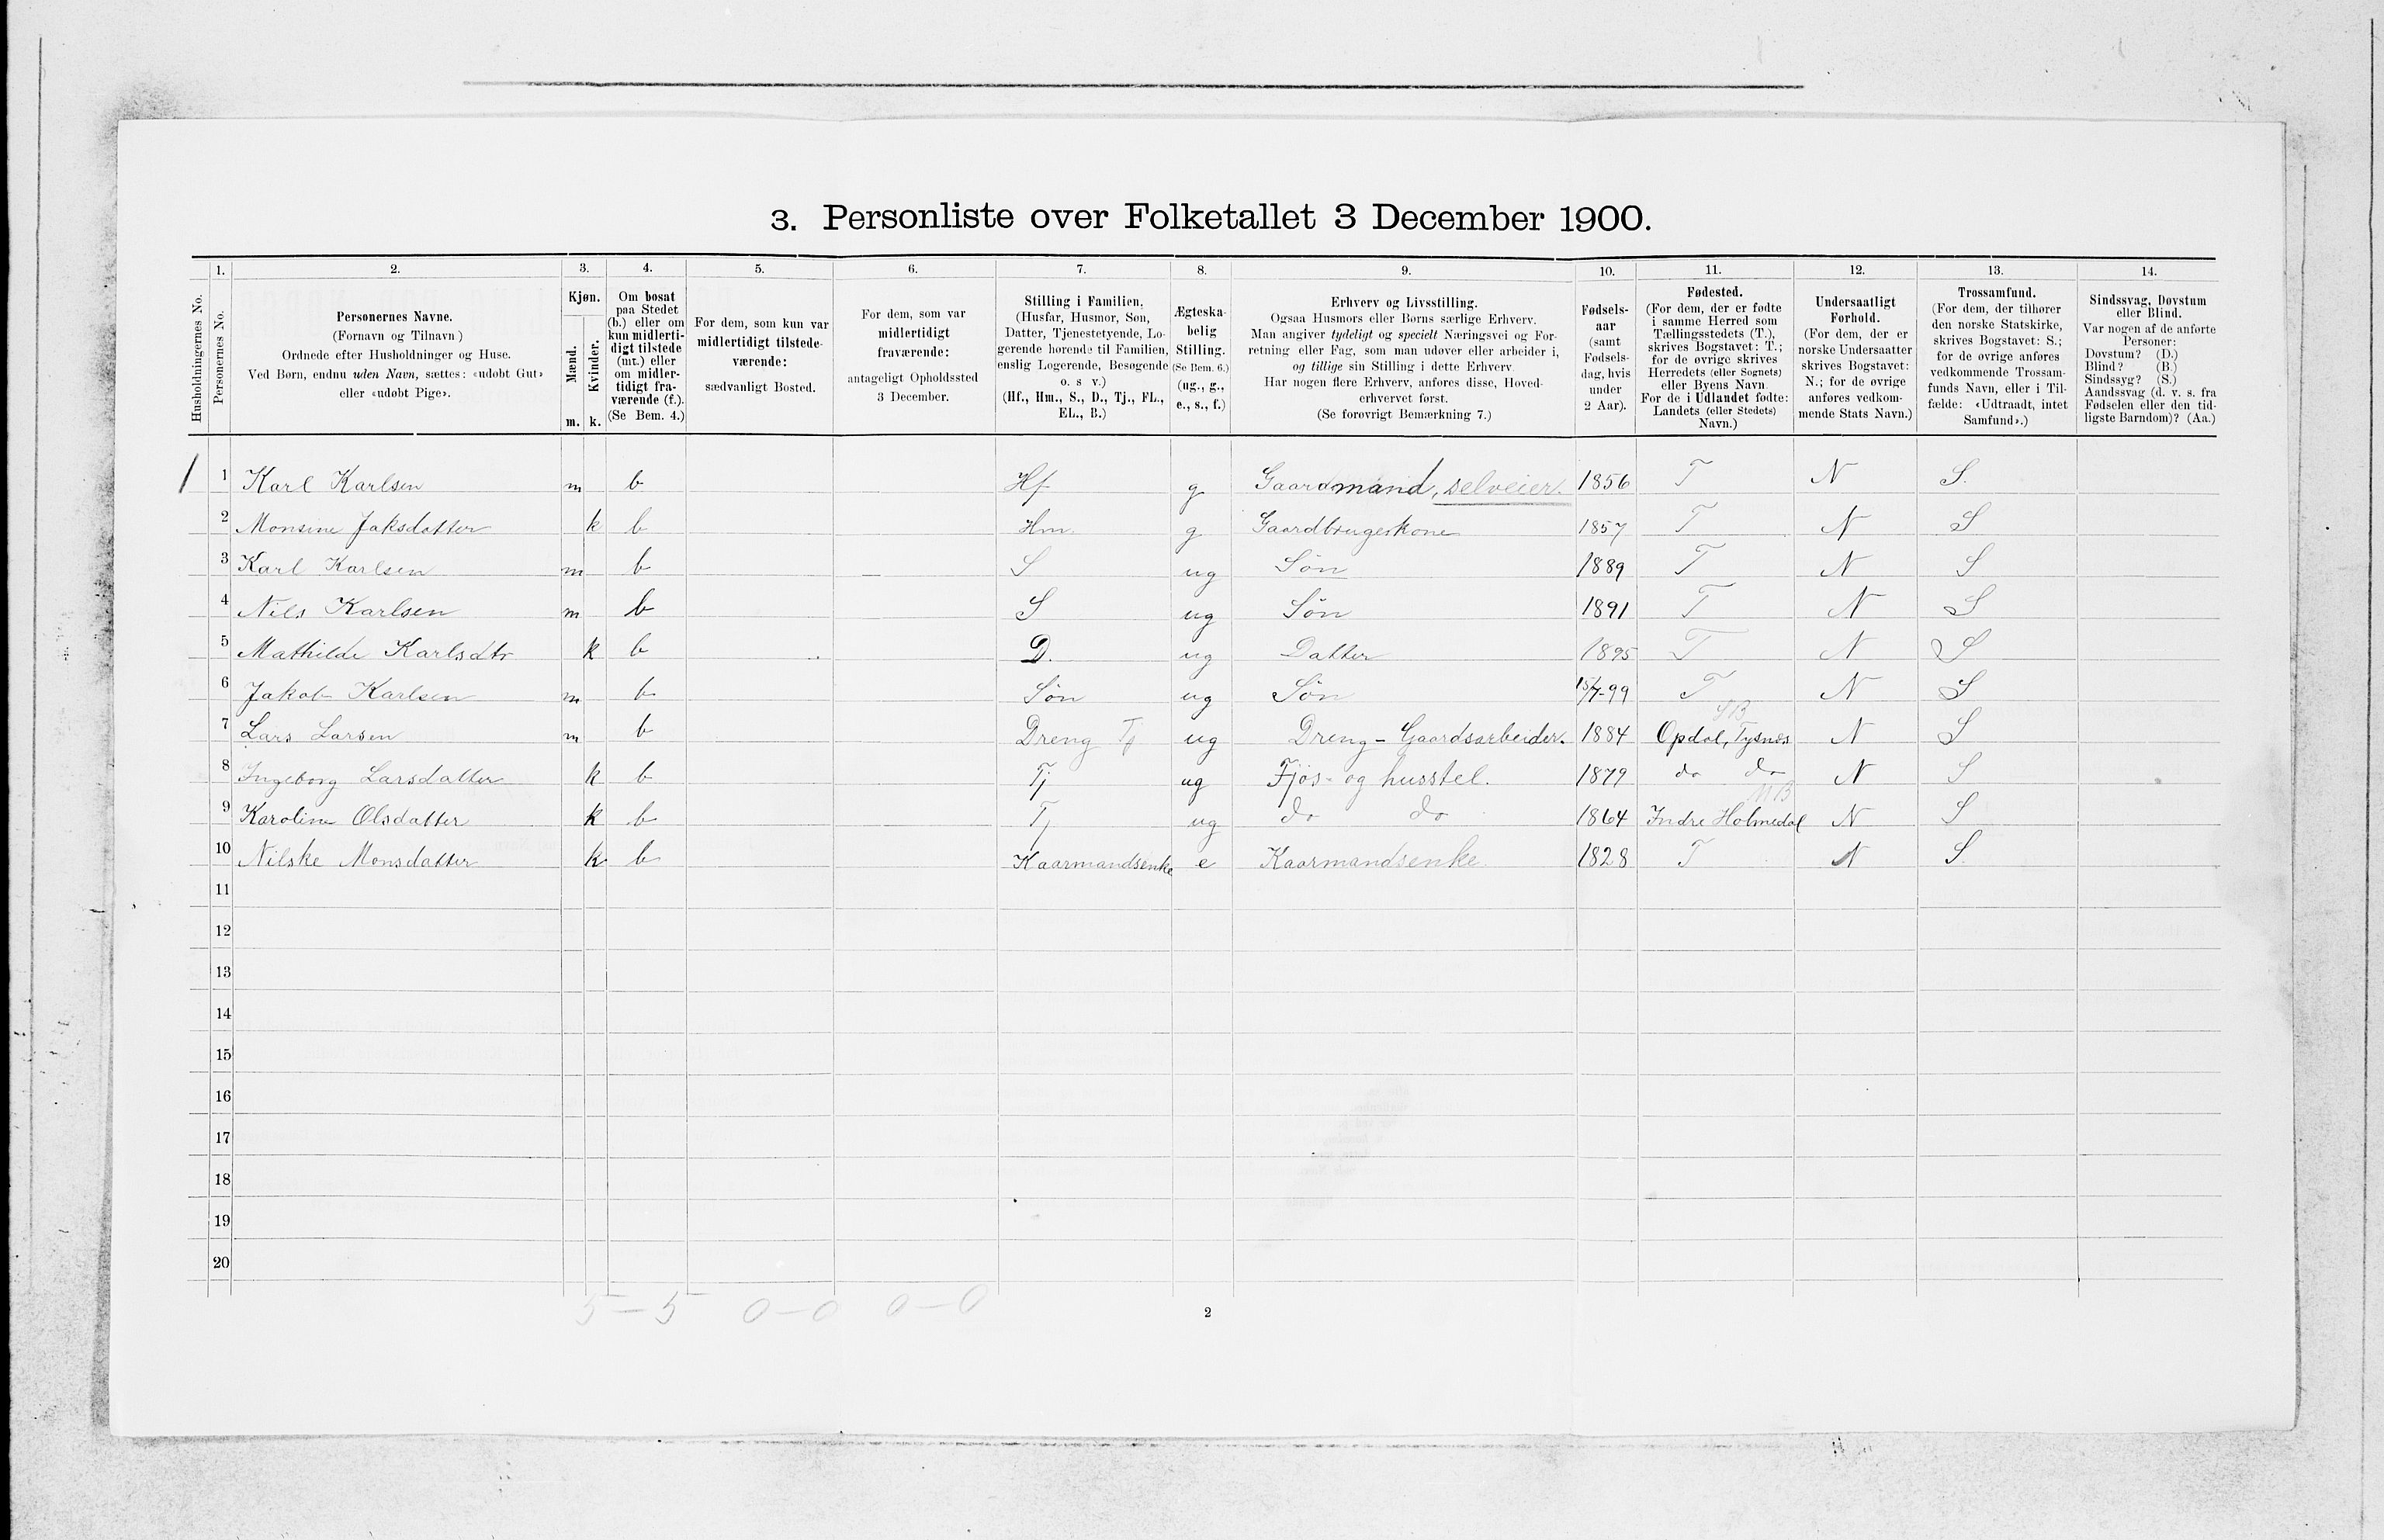 3. Personliste over Folketallet 3 December 1900.
1. 2. 3. 4. 5. 6. 7. 8. 9. 10. 11. 12. 13. 14.
Husholdningernes No.
Personernes No.
Personernes Navne.
(Fornavn og Tilnavn)
Ordnede efter Husholdninger og Huse.
Ved Børn, endnu uden Navn, sættes: «udøbt Gut»
eller «udøbt Pige».
Kjøn.
Mænd.
Kvinder.
m. k.
Om bosat
paa Stedet
(b.) eller om
kun midlerti-
digt tilstede
(mt.) eller
om midler-
tidigt fra-
værende (f.).
(Se Bem. 4.)
For dem, som kun var
midlertidigt tilstede-
værende:
sædvanligt Bosted.
For dem, som var
midlertidigt
fraværende:
antageligt Opholdssted
3 December.
Stilling i Familien.
(Husfar, Husmor, Søn,
Datter, Tjenestetyende, Lo-
gerende hørende til Familien,
enslig Logerende, Besøgende
o. s v.)
(Hf., Hm., S., D., Tj., FL.,
EL., B.)
Ægteska-
belig
Stilling.
(Se Bem. 6.)
(ug., g.,
e., s., f.)
Erhverv og Livsstilling.
Ogsaa Husmors eller Børns særlige Erhverv.
Man angiver tydeligt og specielt Næringsvei og For-
retning eller Fag, som man udøver eller arbeider i,
og tillige sin Stilling i dette Erhverv.
Har nogen flere Erhverv, anføres disse, Hoved-
erhvervet først.
(Se forøvrigt Bemærkning 7.)
Fødsels-
aar
(samt
Fødsels-
dag, hvis
under
2 Aar).
Fødested.
(For dem, der er fødte
i samme Herred som
Tællingsstedets (T.),
skrives Bogstavet: T.;
for de øvrige skrives
Herredets (eller Sognets)
eller Byens Navn.
For de i Udlandet fødte:
Landets (eller Stedets)
Navn.)
Undersaatligt
Forhold.
(For dem, der er
norske Undersaatter
skrives Bogstavet:
N.; for de øvrige
anføres vedkom-
mende Stats Navn.)
Trossamfund.
(For dem, der tilhører
den norske Statskirke,
skrives Bogstavet: S.;
for de øvrige anføres
vedkommende Trossam-
funds Navn, eller i Til-
fælde: «Udtraadt, intet
Samfund».)
Sindssvag, Døvstum
eller Blind.
Var nogen af de anførte
Personer:
Døvstum? (D.)
Blind? (B.)
Sindssyg? (S.)
Aandssvag (d. v. s. fra
Fødselen eller den tid-
ligste Barndom)? (Aa.)
1 1 Karl Karlsen m b Hf g Gaardmand, selveier. 1856 T N S.
2 Monsine Jaksdatter k b Hm. g Gaardbrugerkone 1857 T N S
3 Karl Karlsen m b S ug Søn 1889 T N S
4 Nils Karlsen m b S ug Søn 1891 T N S
5 Mathilde Karlsdtr k b D. ug Datter 1895 T N S
6 Jakob Karlsen m b Søn ug Søn 15/7-99 T N S
SB
7 Lars Larsen m b Dreng Tj ug Dreng - Gaardsarbeider. 1884 Opdal, Tysnes N S
8 Ingeborg Larsdatter k b Tj ug Fjøs- og husstel. 1879 do do N S
MB
9 Karoline Olsdatter k b Tj ug do do 1864 Indre Holmedal N S
10 Nilske Monsdatter k b Kaarmandsenke e Kaarmandsenke 1828 T N S.
11
12
13
14
15
16
17
18
19
20
5 - 5 0 - 0 0 - 0
2